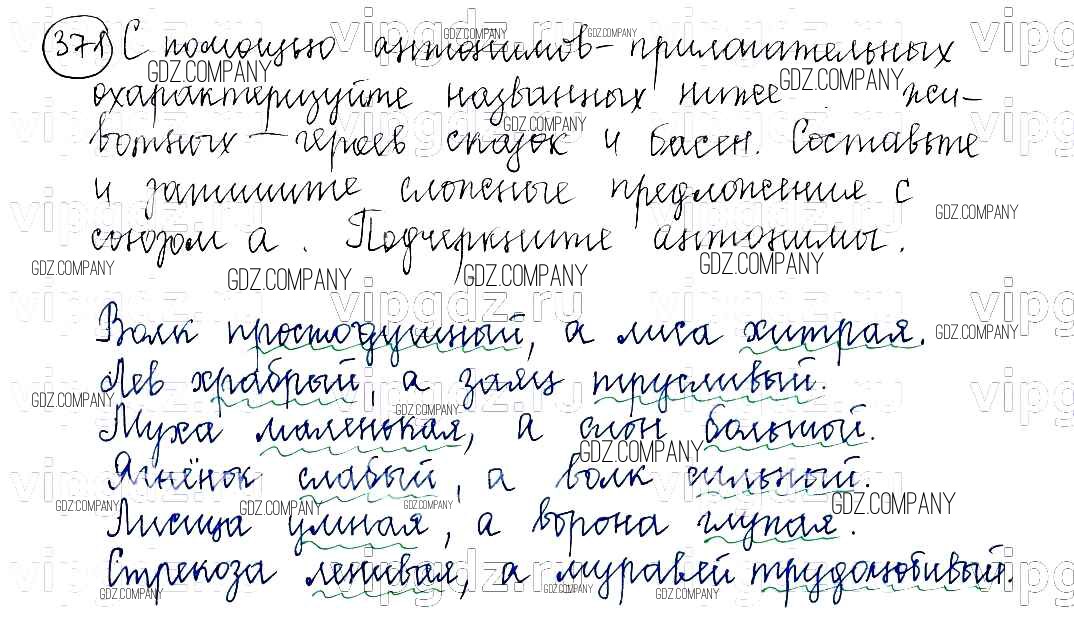 371 С помощью антонимов-прилагательных
охарактеризуйте названных ниже жи-
вотных - героев сказок и басен. Составьте
и запишите сложные предложения с
союзом а. Подчеркните антонимы.
Волк простодушный, а лиса хитрая.
Лев храбрый, а заяц трусливый.
Муха маленькая, а слон большой.
Ягнёнок слабый, а волк сильный.
Лисица умная, а ворона глупая.
Стрекоза ленивая, а муравей трудолюбивый.
vipgdz.ru
GDZ.COMPANY